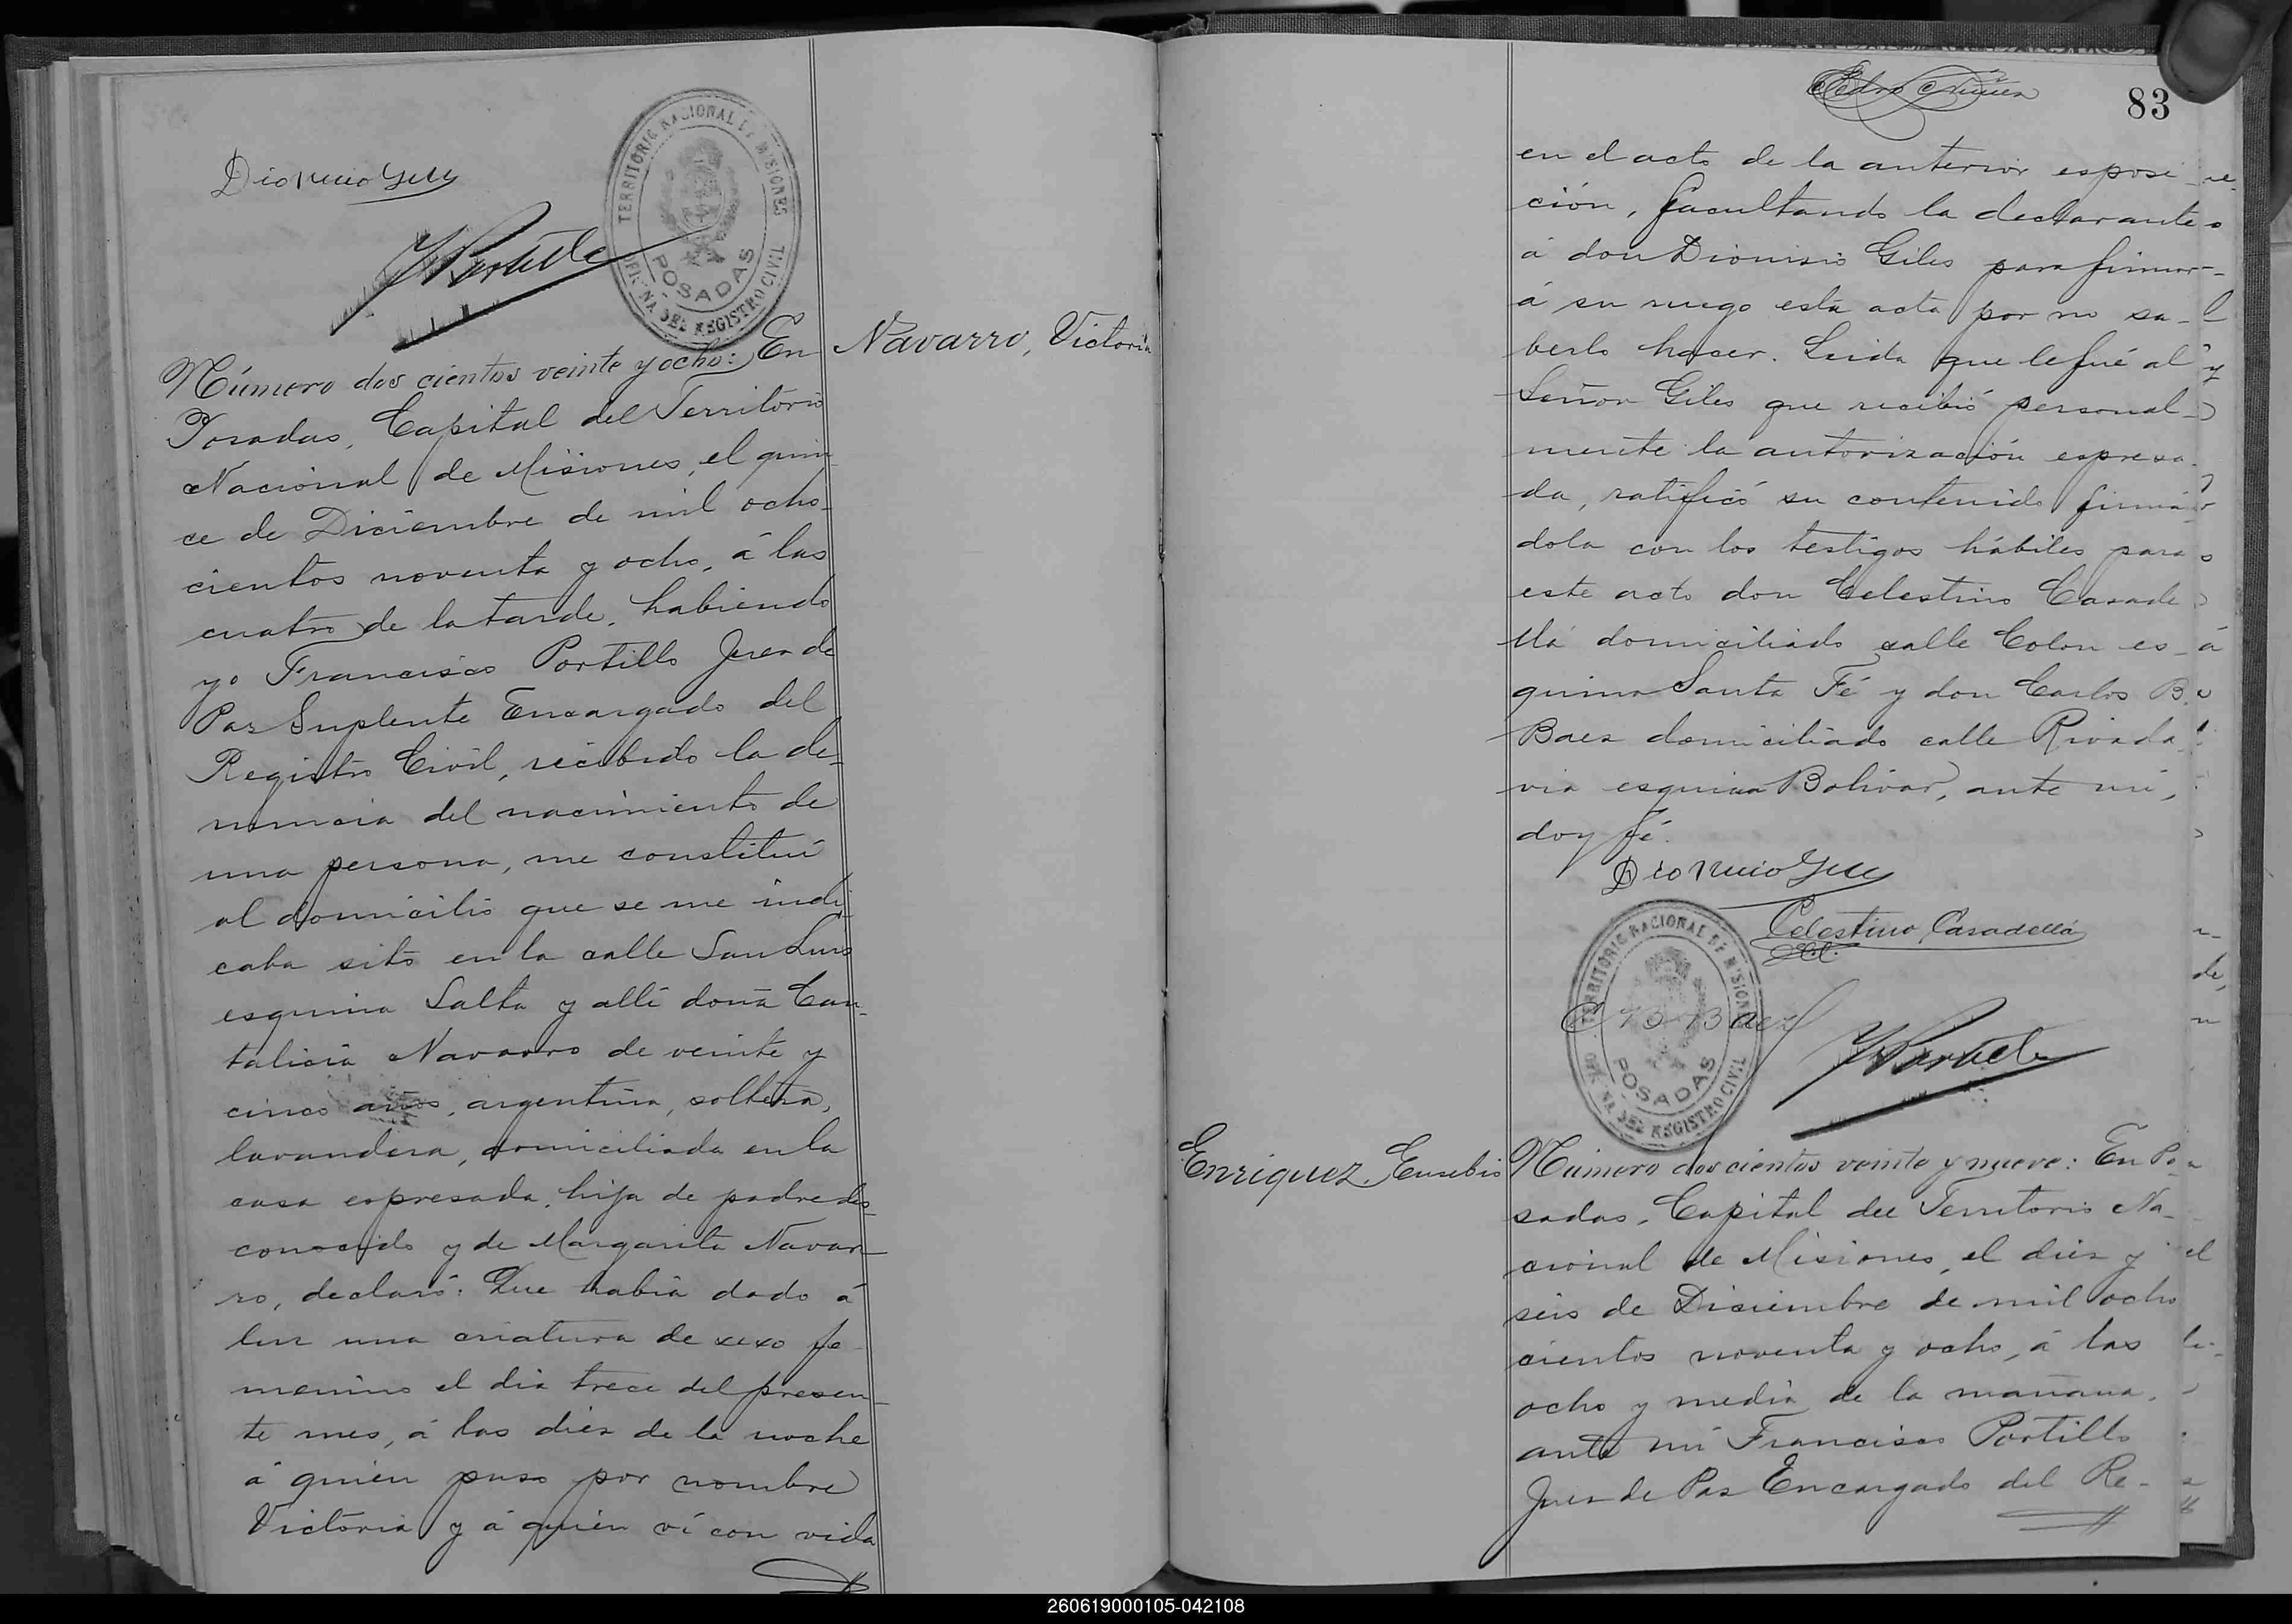 Dionicio Giles
F Portillo
TERRITORIO NACIONAL DE MISIONES
POSADAS
OFICINA DEL REGISTRO CIVIL
Navarro, Victoria
Número dos cientos veinte y ocho: En
Posadas, Capital del Territorio
Nacional de Misiones, el quin
ce de Diciembre de mil ocho-
cientos noventa y ocho, á las
cuatro de la tarde, habiendo
yo Francisco Portillo Juez de
Paz Suplente Encargado del
Registro Civil, recibido la de-
nuncia del nacimiento de
una persona, me constituí
al domicilio que se me indi-
caba sito en la calle San Luis
esquina Salta y allí doña Can-
talicia Navarro de veinte y
cinco años, argentina, soltera,
lavandera, domiciliada en la
casa espresada, hija de padre des-
conocido y de Margarita Navar-
ro, declaró: Que habia dado á
luz una criatura de sexo fe-
menino el dia trece del presen-
te mes, á las diez de la noche
á quien puso por nombre
Victoria y á quien ví con vida
83
en el acto de la anterior esposi-
ción, facultando la declarante
á don Dionisio Giles para firmar
á su ruego esta acta por no sa-
berlo hacer. Leida que le fué al
Señor Giles que recibió personal-
mente la autorización espresa-
da, ratificó su contenido firmán
dola con los testigos hábiles para
este acto don Celestino Casade
llá domiciliado calle Colon es-
quina Santa Fé y don Carlos B.
Baez domiciliado calle Rivada
via esquina Bolivar, ante mí,
doy fé.
Dionicio Giles
Celestino Casadellá
C B Baez
F Portillo
TERRITORIO NACIONAL DE MISIONES
POSADAS
OFICINA DEL REGISTRO CIVIL
Enriquez, Eusebio
Número dos cientos veinte y nueve: En Po-
sadas, Capital del Territorio Na-
cional de Misiones, el diez y
seis de Diciembre de mil ocho
cientos noventa y ocho, á las
ocho y media de la mañana,
ante mí Francisco Portillo
Juez de Paz Encargado del Re-
260619000105-042108